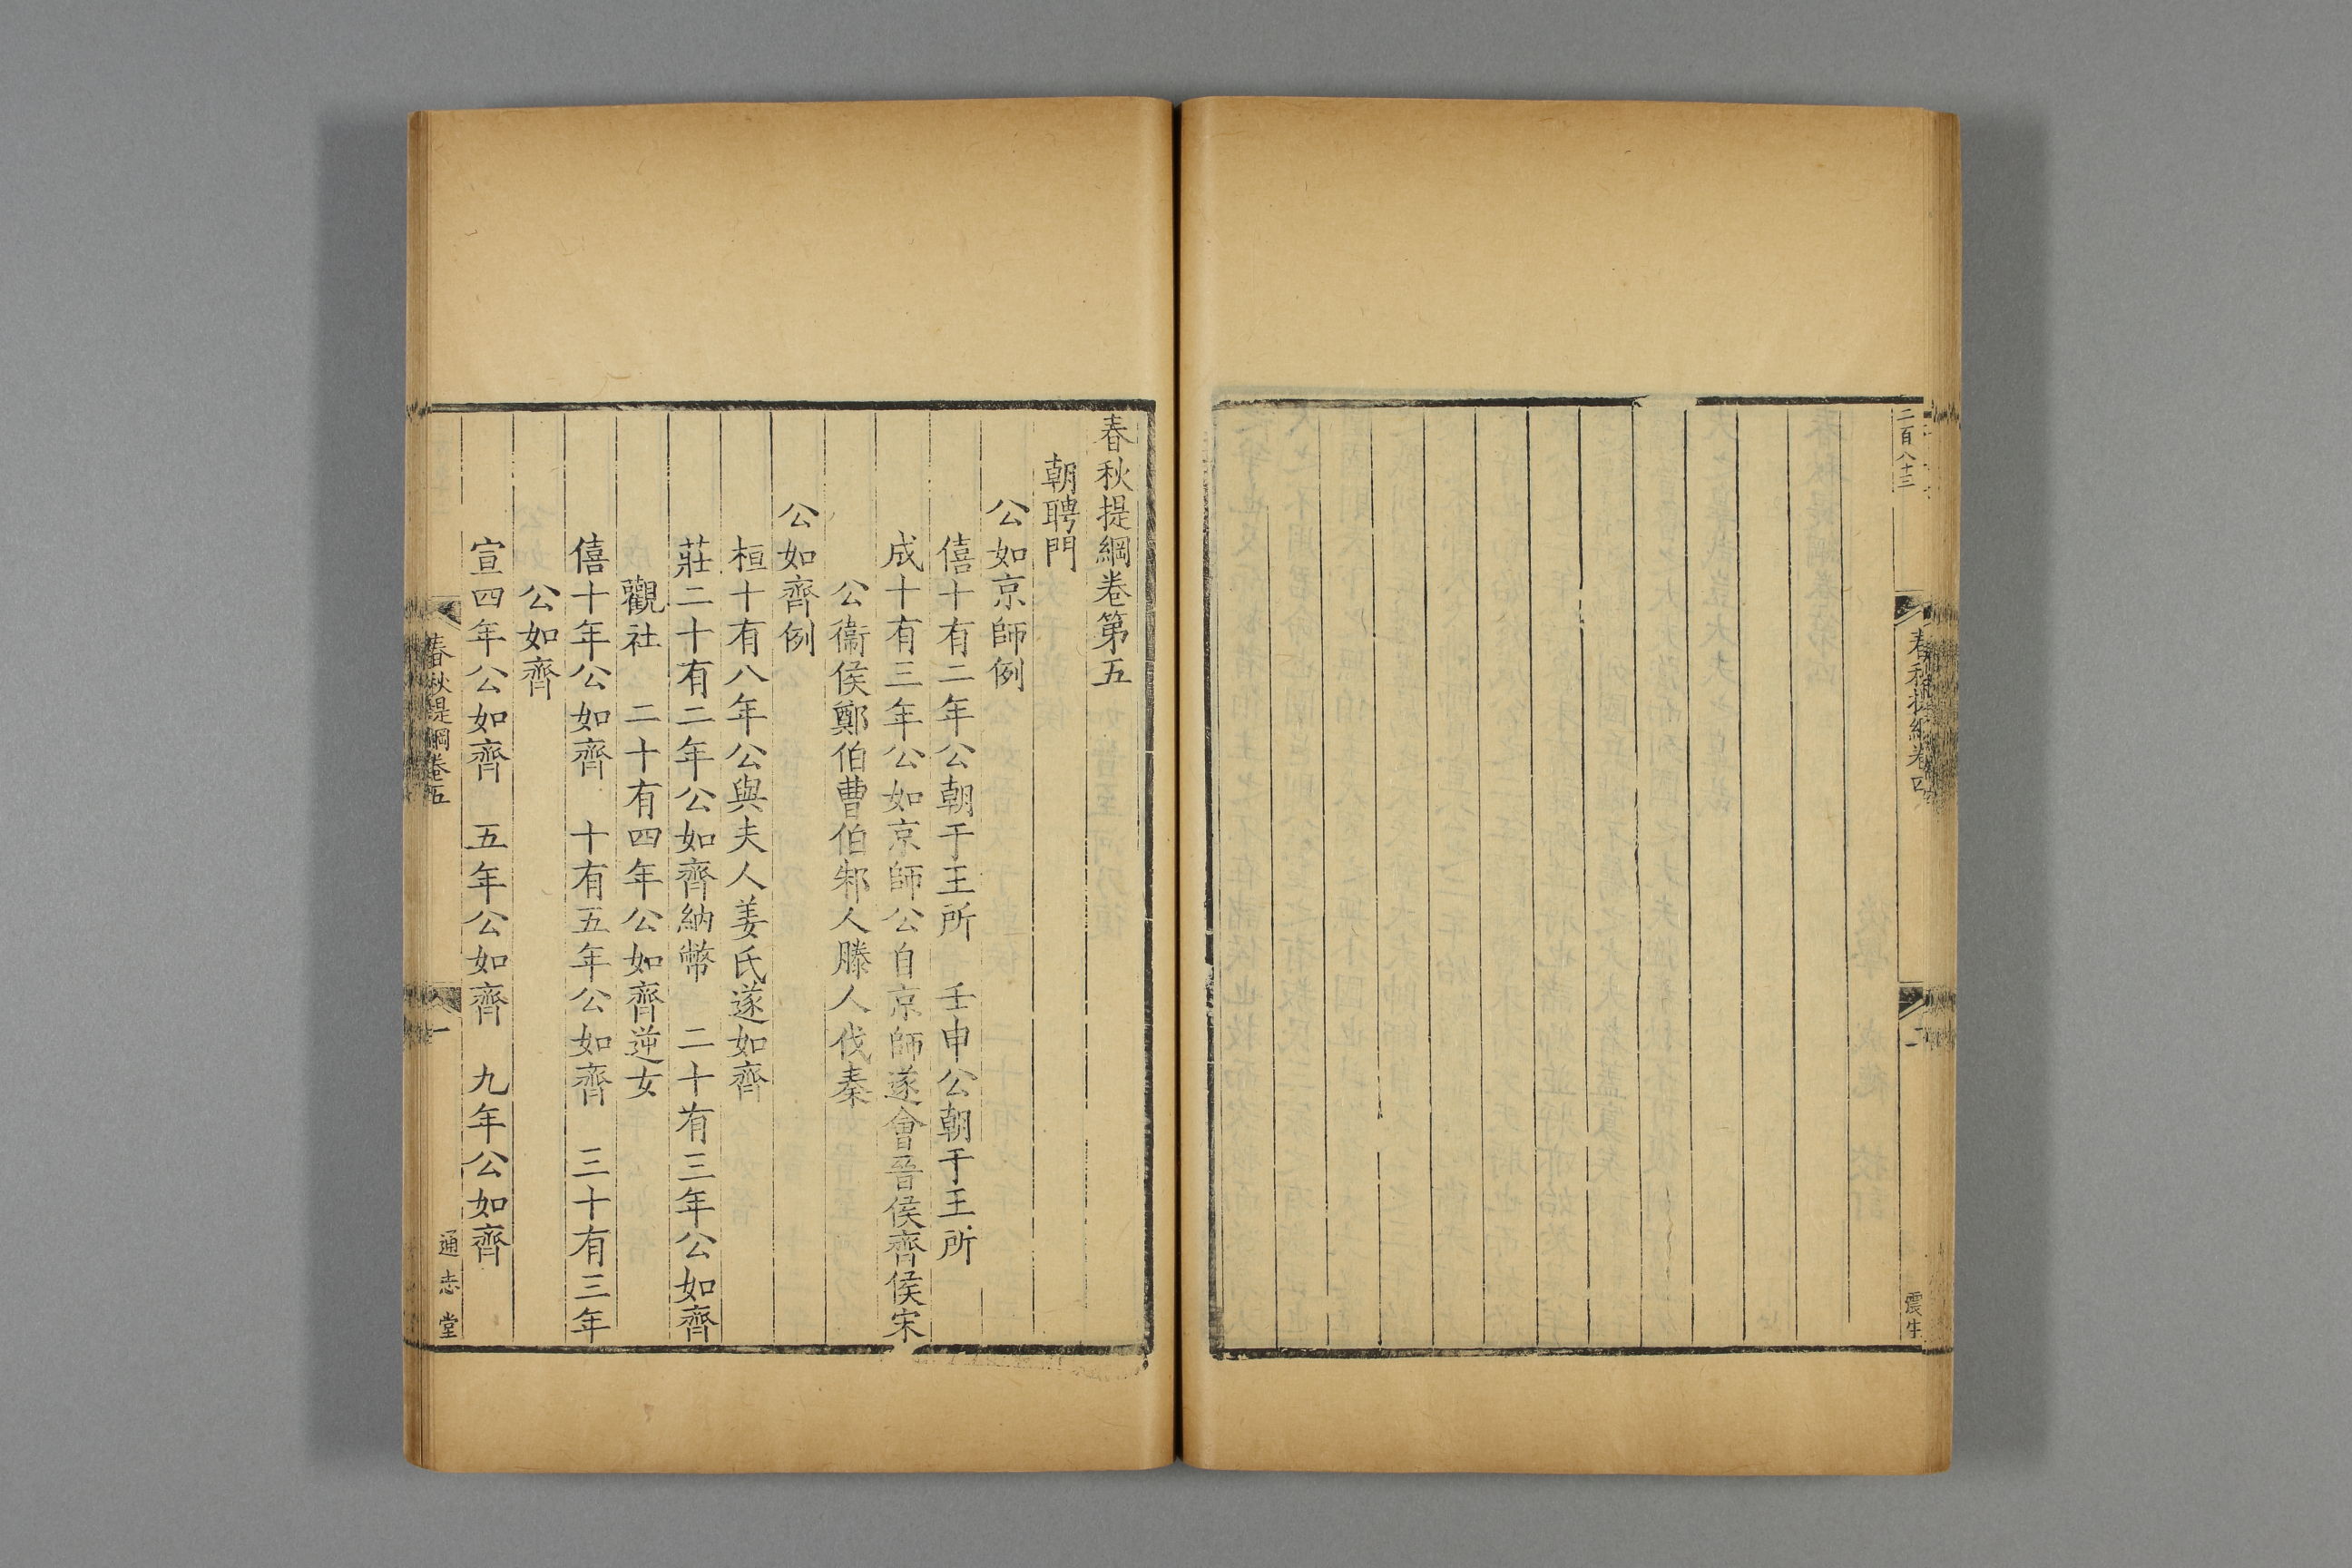 二百八十三
春秋提綱卷四
震生
春秋提綱卷第五
朝聘門
公如京師例
僖十有二年公朝于王所　壬申公朝于王所
成十有三年公如京師公自京師遂會晉侯齊侯宋
公衞侯鄭伯曹伯邾人滕人伐秦
公如齊例
桓十有八年公與夫人姜氏遂如齊
莊二十有二年公如齊納幣　二十有三年公如齊
觀社　二十有四年公如齊逆女
僖十年公如齊　十有五年公如齊　三十有三年
公如齊
宣四年公如齊　五年公如齊　九年公如齊
春秋提綱卷五
一
通志堂